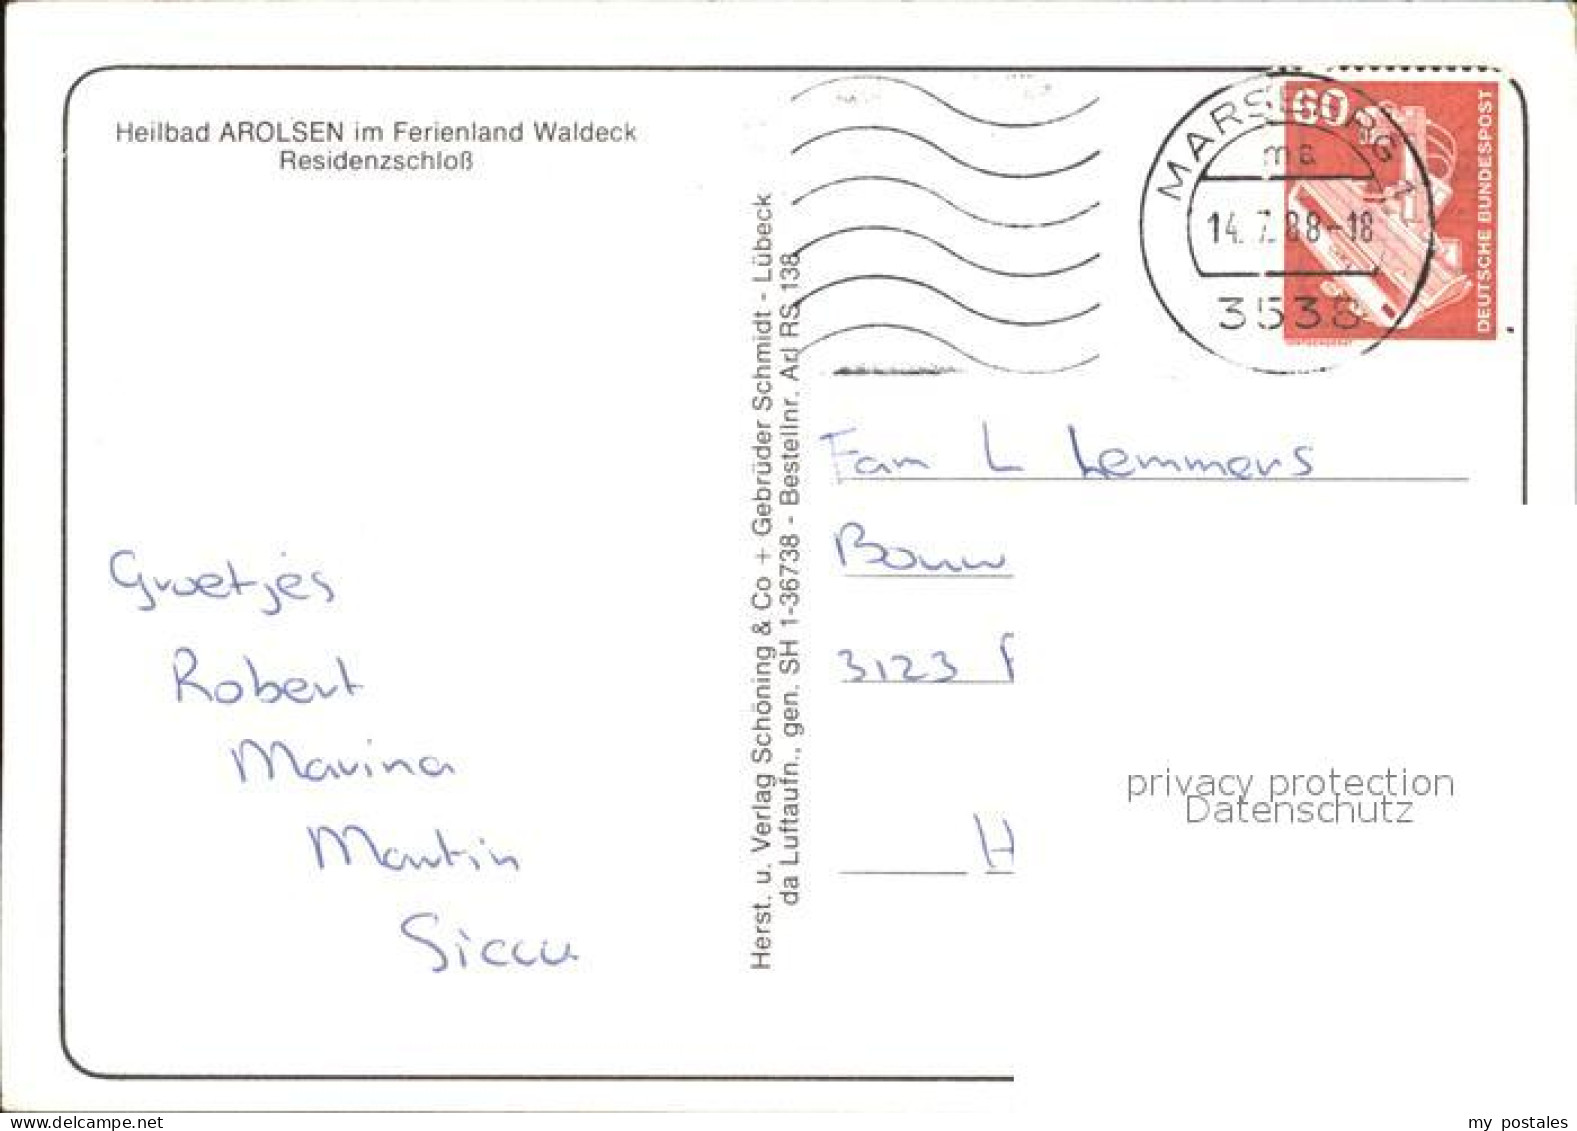 Heilbad AROLSEN im Ferienland Waldeck
Residenzschloß
Groetjes
Robert
Marina
Martin
Siccu
Herst. u. Verlag Schöning & Co + Gebrüder Schmidt - Lübeck
da Luftaufn., gen. SH 1-36738 - Bestellnr. Arl RS 138
MARSBERG 1
ma
14.7.88-18
3538
60
DEUTSCHE BUNDESPOST
Fam L Lemmers
Bouw
3123
H
privacy protection
Datenschutz
my postales